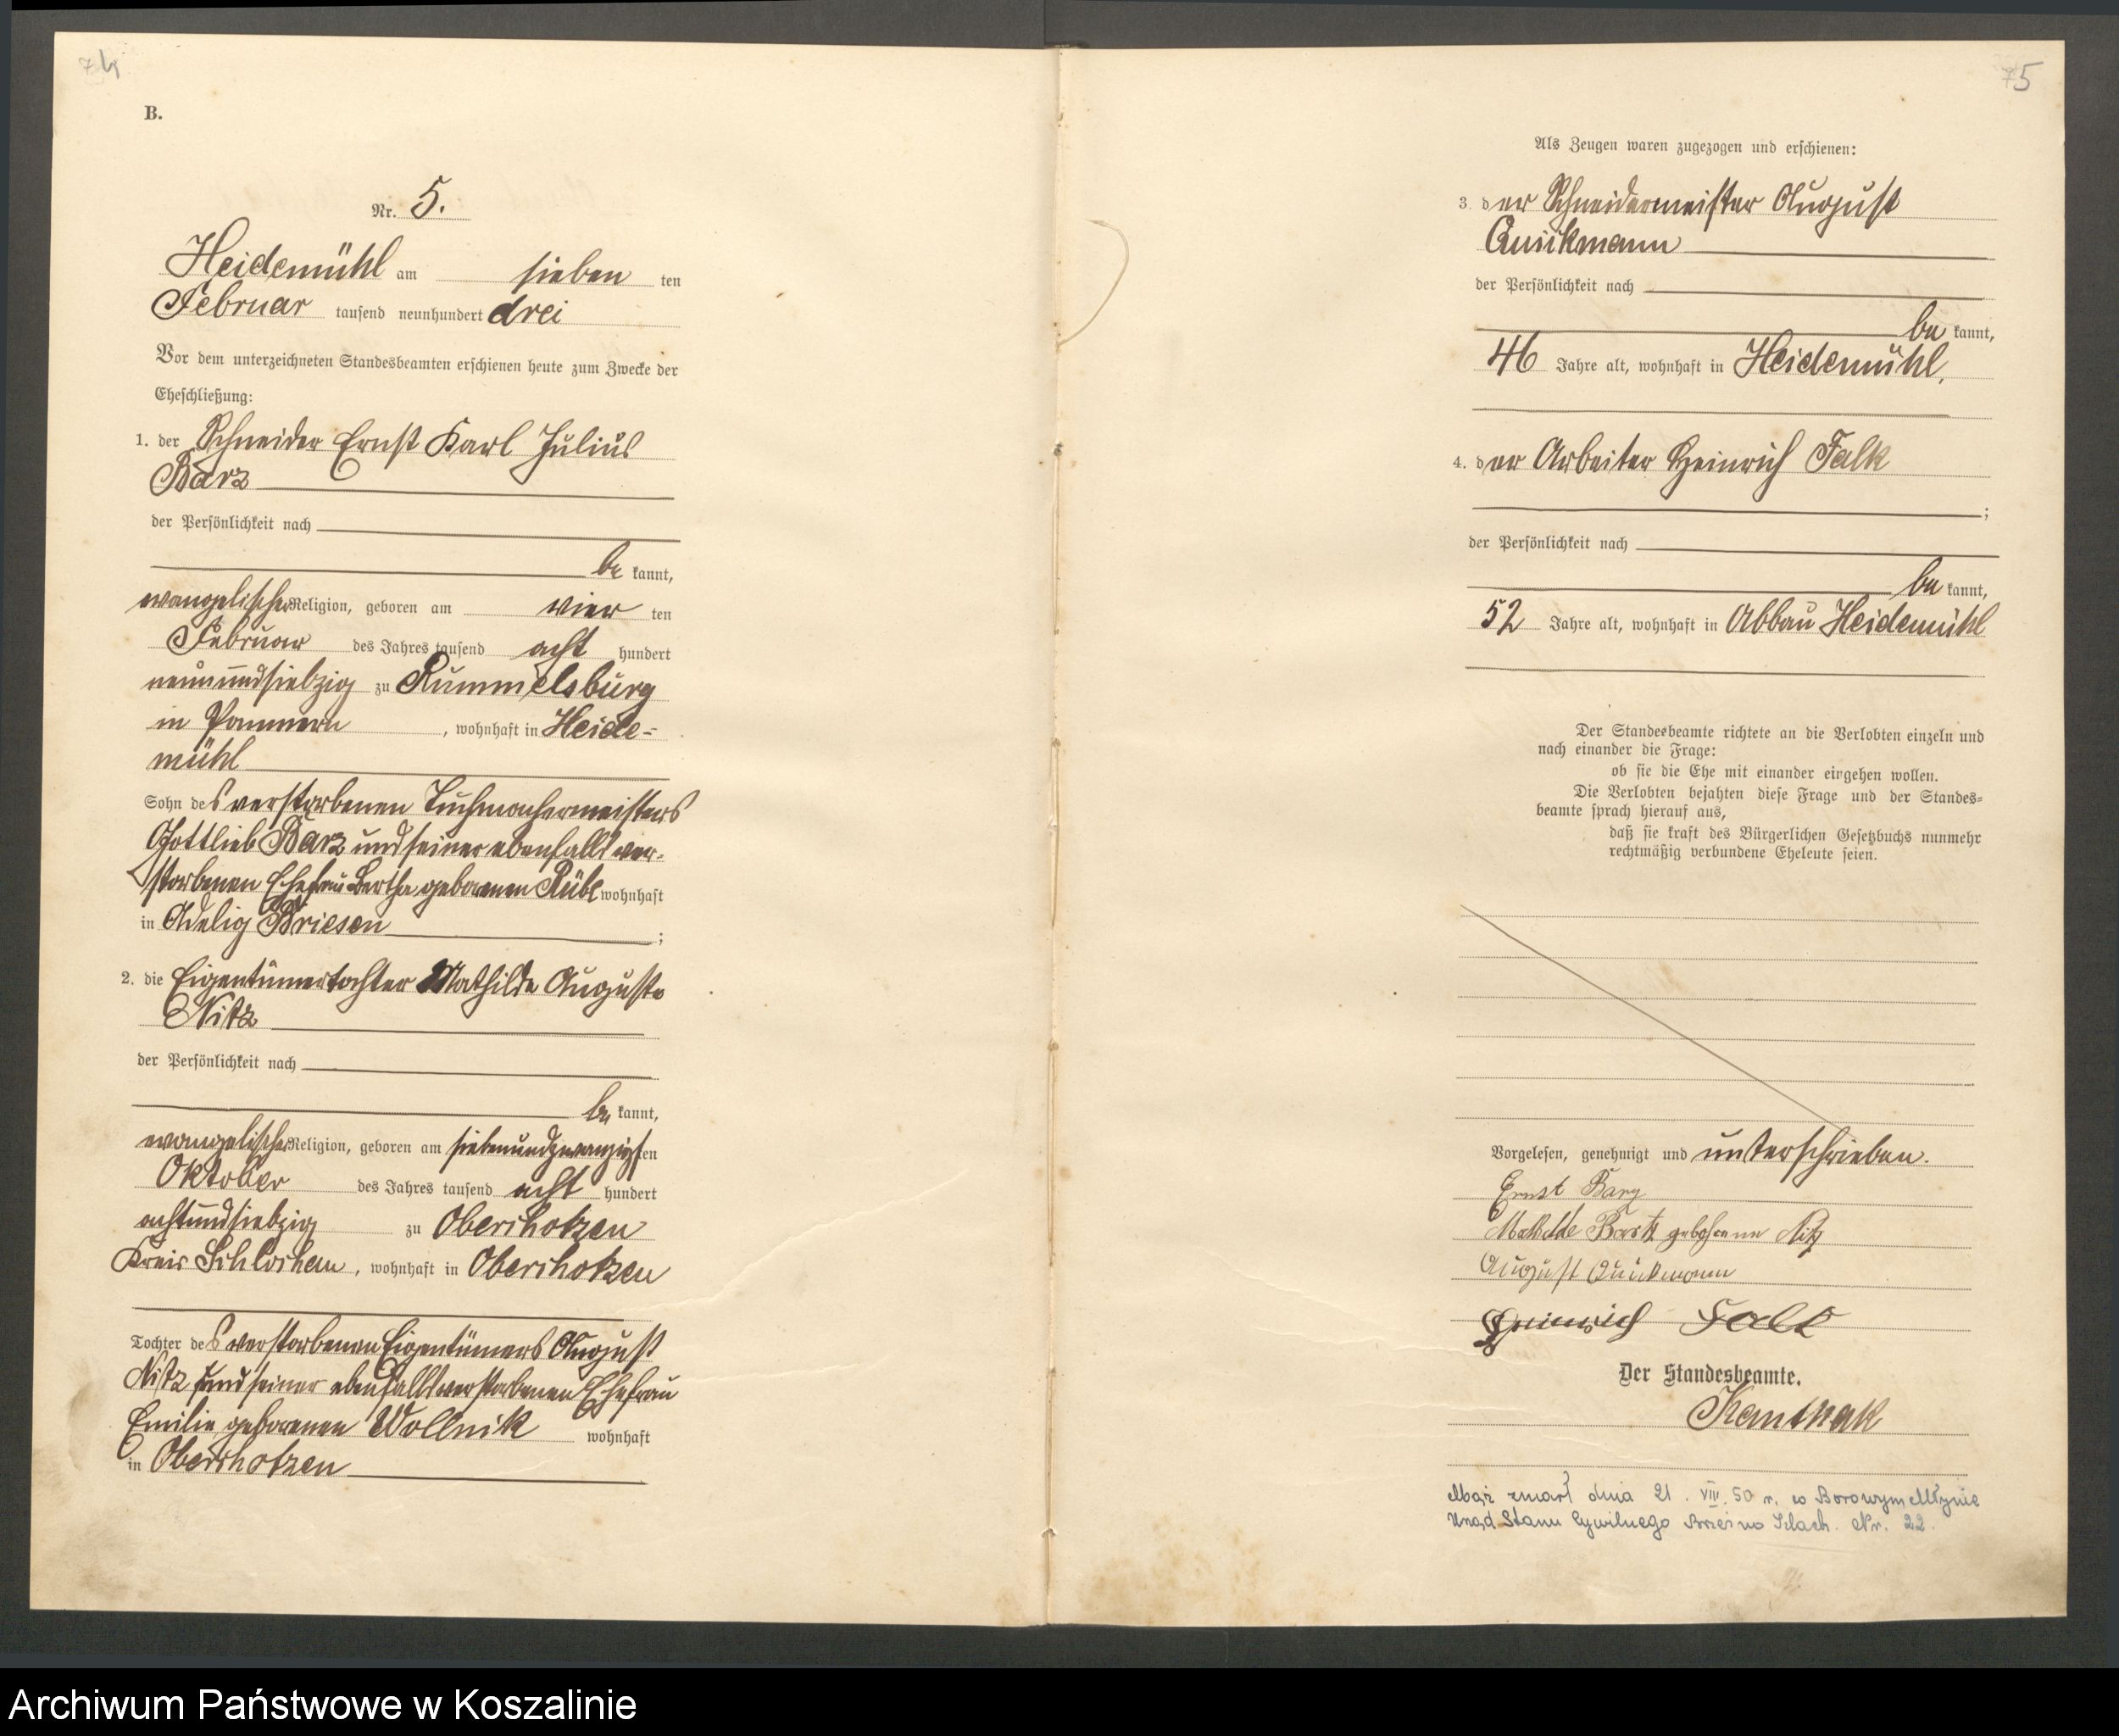 74
B.
Nr. 5.
Heidemühl am sieben ten
Februar tausend neunhundert drei
Vor dem unterzeichneten Standesbeamten erschienen heute zum Zwecke der
Eheschließung:
1. der Schneider Ernst Karl Julius
Barz
der Persönlichkeit nach
be kannt,
evangelischer Religion, geboren am vier ten
Februar des Jahres tausend acht hundert
neunundsiebzig zu Rummelsburg
in Pommern, wohnhaft in Heide-
mühl
Sohn des verstorbenen Tuchmachermeisters
Gottlieb Barz und seiner ebenfalls ver-
storbenen Ehefrau Bertha geborenen Rübe wohnhaft
in Adelig Briesen;
2. die Eigentümertochter Mathilde Auguste
Nitz
der Persönlichkeit nach
be kannt,
evangelischer Religion, geboren am siebenundzwanzigsten
Oktober des Jahres tausend acht hundert
achtundsiebzig zu Oberschotzen
Kreis Schlochau, wohnhaft in Oberschotzen
Tochter des verstorbenen Eigentümers August
Nitz und seiner ebenfalls verstorbenen Ehefrau
Emilie geborenen Wollnik wohnhaft
in Oberschotzen
75
Als Zeugen waren zugezogen und erschienen:
3. der Schneidermeister August
Quickmann
der Persönlichkeit nach
be kannt,
46 Jahre alt, wohnhaft in Heidemühl,
4. der Arbeiter Heinrich Falk
;
der Persönlichkeit nach
be kannt,
52 Jahre alt, wohnhaft in Abbau Heidemühl
Der Standesbeamte richtete an die Verlobten einzeln und
nach einander die Frage:
ob sie die Ehe mit einander eingehen wollen.
Die Verlobten bejahten diese Frage und der Standes=
beamte sprach hierauf aus,
daß sie kraft des Bürgerlichen Gesetzbuchs nunmehr
rechtmäßig verbundene Eheleute seien.
Vorgelesen, genehmigt und unterschrieben.
Ernst Barz
Mathilde Bartz geborenne Nitz
August Quickmann
Heinrich Falk
Der Standesbeamte.
Kanthak
Mąż zmarł dnia 21. VIII. 50 r. w Borowym Młynie
Urząd Stanu Cywilnego Brzeźno Szlach. Nr. 22.
Archiwum Państwowe w Koszalinie